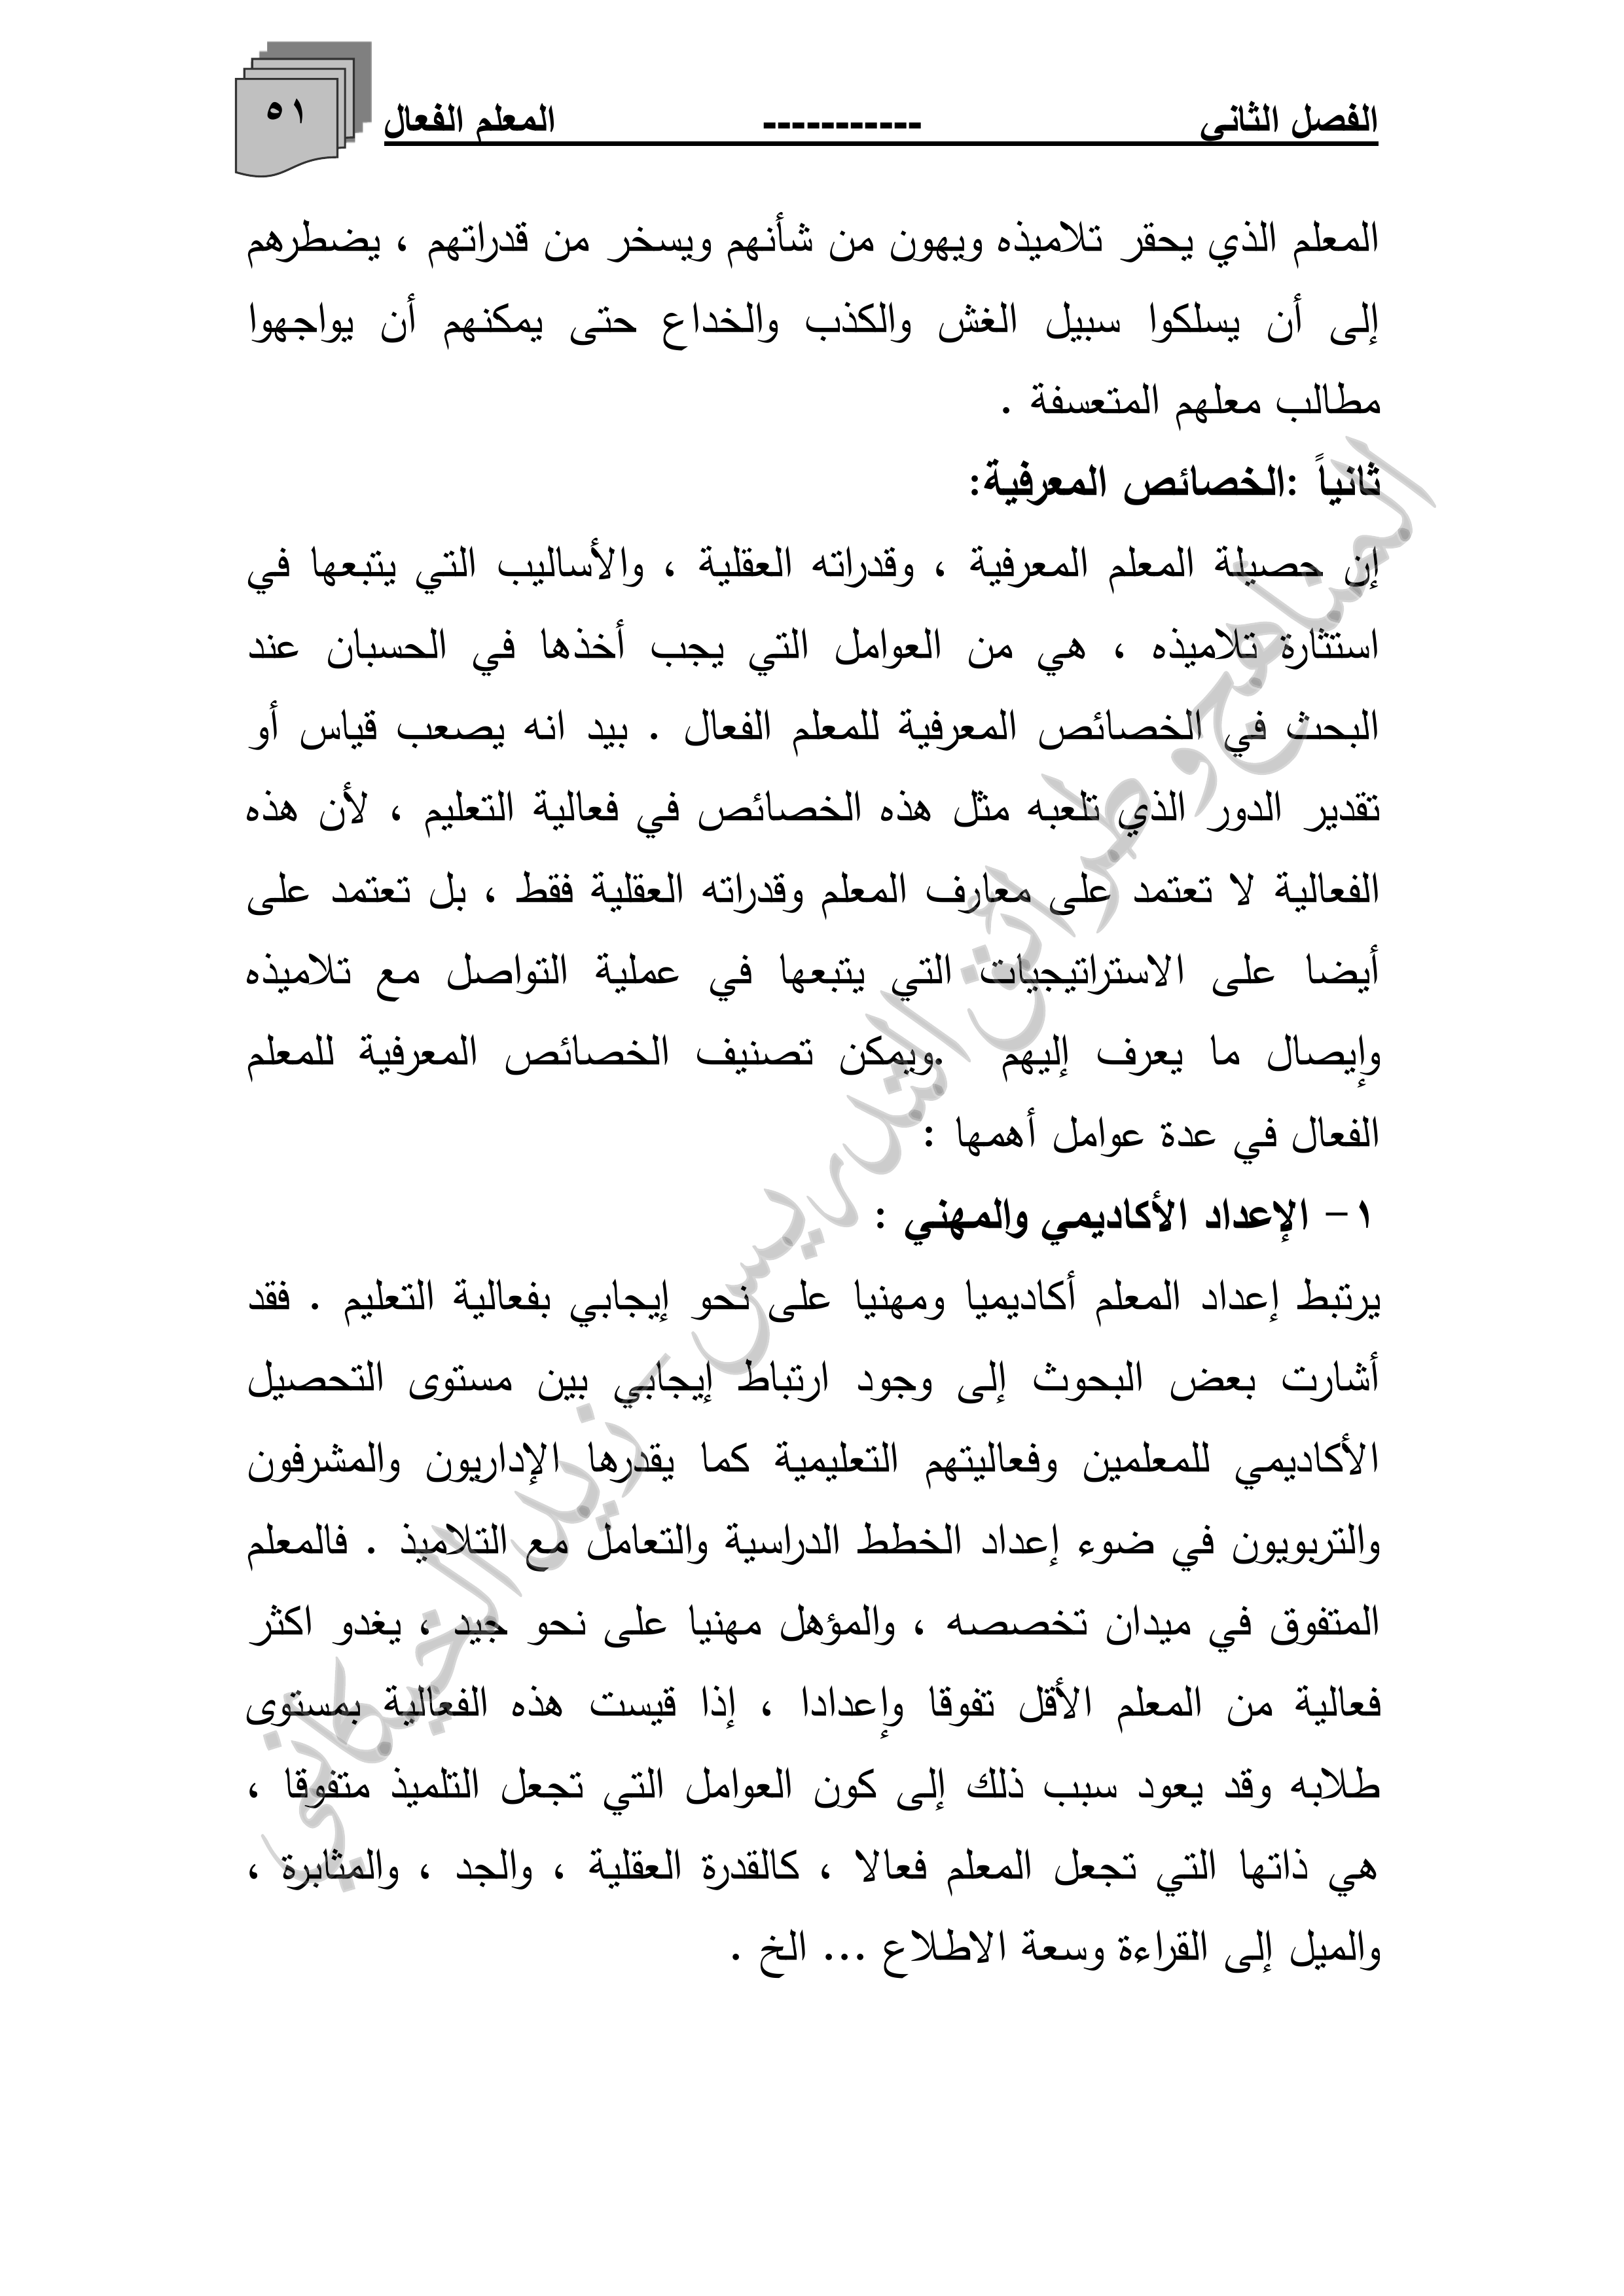 الفصل الثاني ----------- المعلم الفعال
٥١
المعلم الذي يحقر تلاميذه ويهون من شأنهم ويسخر من قدراتهم ، يضطرهم
إلى أن يسلكوا سبيل الغش والكذب والخداع حتى يمكنهم أن يواجهوا
مطالب معلهم المتعسفة .
ثانياً :الخصائص المعرفية:
إن حصيلة المعلم المعرفية ، وقدراته العقلية ، والأساليب التي يتبعها في
استثارة تلاميذه ، هي من العوامل التي يجب أخذها في الحسبان عند
البحث في الخصائص المعرفية للمعلم الفعال . بيد انه يصعب قياس أو
تقدير الدور الذي تلعبه مثل هذه الخصائص في فعالية التعليم ، لأن هذه
الفعالية لا تعتمد على معارف المعلم وقدراته العقلية فقط ، بل تعتمد على
أيضا على الاستراتيجيات التي يتبعها في عملية التواصل مع تلاميذه
وإيصال ما يعرف إليهم .ويمكن تصنيف الخصائص المعرفية للمعلم
الفعال في عدة عوامل أهمها :
١- الإعداد الأكاديمي والمهني :
يرتبط إعداد المعلم أكاديميا ومهنيا على نحو إيجابي بفعالية التعليم . فقد
أشارت بعض البحوث إلى وجود ارتباط إيجابي بين مستوى التحصيل
الأكاديمي للمعلمين وفعاليتهم التعليمية كما يقدرها الإداريون والمشرفون
والتربويون في ضوء إعداد الخطط الدراسية والتعامل مع التلاميذ . فالمعلم
المتفوق في ميدان تخصصه ، والمؤهل مهنيا على نحو جيد ، يغدو اكثر
فعالية من المعلم الأقل تفوقا وإعدادا ، إذا قيست هذه الفعالية بمستوى
طلابه وقد يعود سبب ذلك إلى كون العوامل التي تجعل التلميذ متفوقا ،
هي ذاتها التي تجعل المعلم فعالا ، كالقدرة العقلية ، والجد ، والمثابرة ،
والميل إلى القراءة وسعة الاطلاع ... الخ .
المناهج وطرائق التدريس - زيد الخيكاني